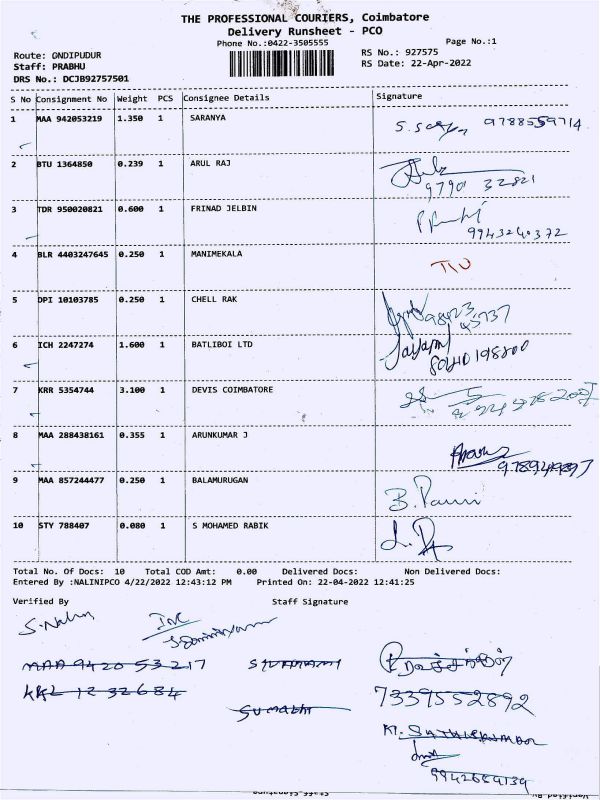 THE PROFESSIONAL COURIERS, Coimbatore
Delivery Runsheet - PCO
Phone No.:0422-3505555
Page No.:1
Route: ONDIPUDUR
RS No.: 927575
Staff: PRABHU
RS Date: 22-Apr-2022
DRS No.: DCJB92757501
S No Consignment No Weight PCS Consignee Details Signature
1 MAA 942053219 1.350 1 SARANYA 9788559714
2 BTU 1364850 0.239 1 ARUL RAJ 97901 32821
3 TDR 950020821 0.600 1 FRINAD JELBIN 9943240372
4 BLR 4403247645 0.250 1 MANIMEKALA
5 DPI 10103785 0.250 1 CHELL RAK
6 ICH 2247274 1.600 1 BATLIBOI LTD
7 KRR 5354744 3.100 1 DEVIS COIMBATORE
8 MAA 288438161 0.355 1 ARUNKUMAR J
9 MAA 857244477 0.250 1 BALAMURUGAN
10 STY 788407 0.080 1 S MOHAMED RABIK
Total No. Of Docs: 10 Total COD Amt: 0.00 Delivered Docs: Non Delivered Docs:
Entered By :NALINIPCO 4/22/2022 12:43:12 PM Printed On: 22-04-2022 12:41:25
Verified By Staff Signature
MAA 9420 53217
KKL 1232684
SUMATHI
7339552892